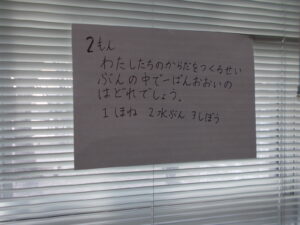 2もん
わたしたちのからだをつくるせい
ぶんの中で一ばんおおいの
はどれでしょう。
1 ほね 2 水ぶん 3 しぼう